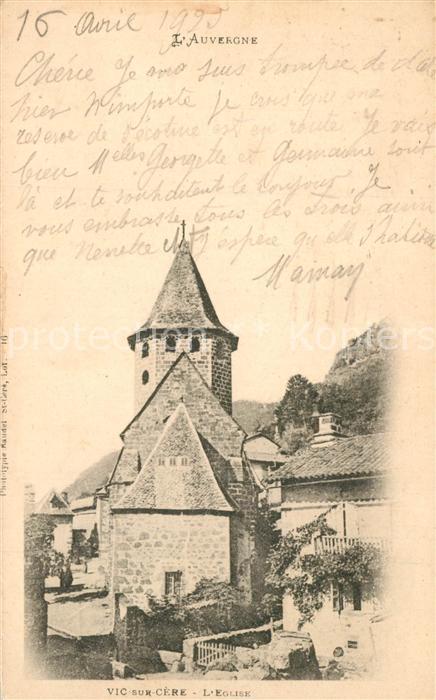 16 Avril 1905
L'AUVERGNE
Chérie Je me suis trompée de date
hier N'importe Je crois que ma
reserve de Nicotine est en route Je vais
bien Melles Georgette et Germaine sont
là et te souhaitent le bonjour Je
vous embrasse tous les trois ainsi
que Nenette J'espère qu'elle
Mamay
protection Kopiers
Phototypie Baudel St-Céré, Lot. 16
VIC-SUR-CÈRE - L'EGLISE